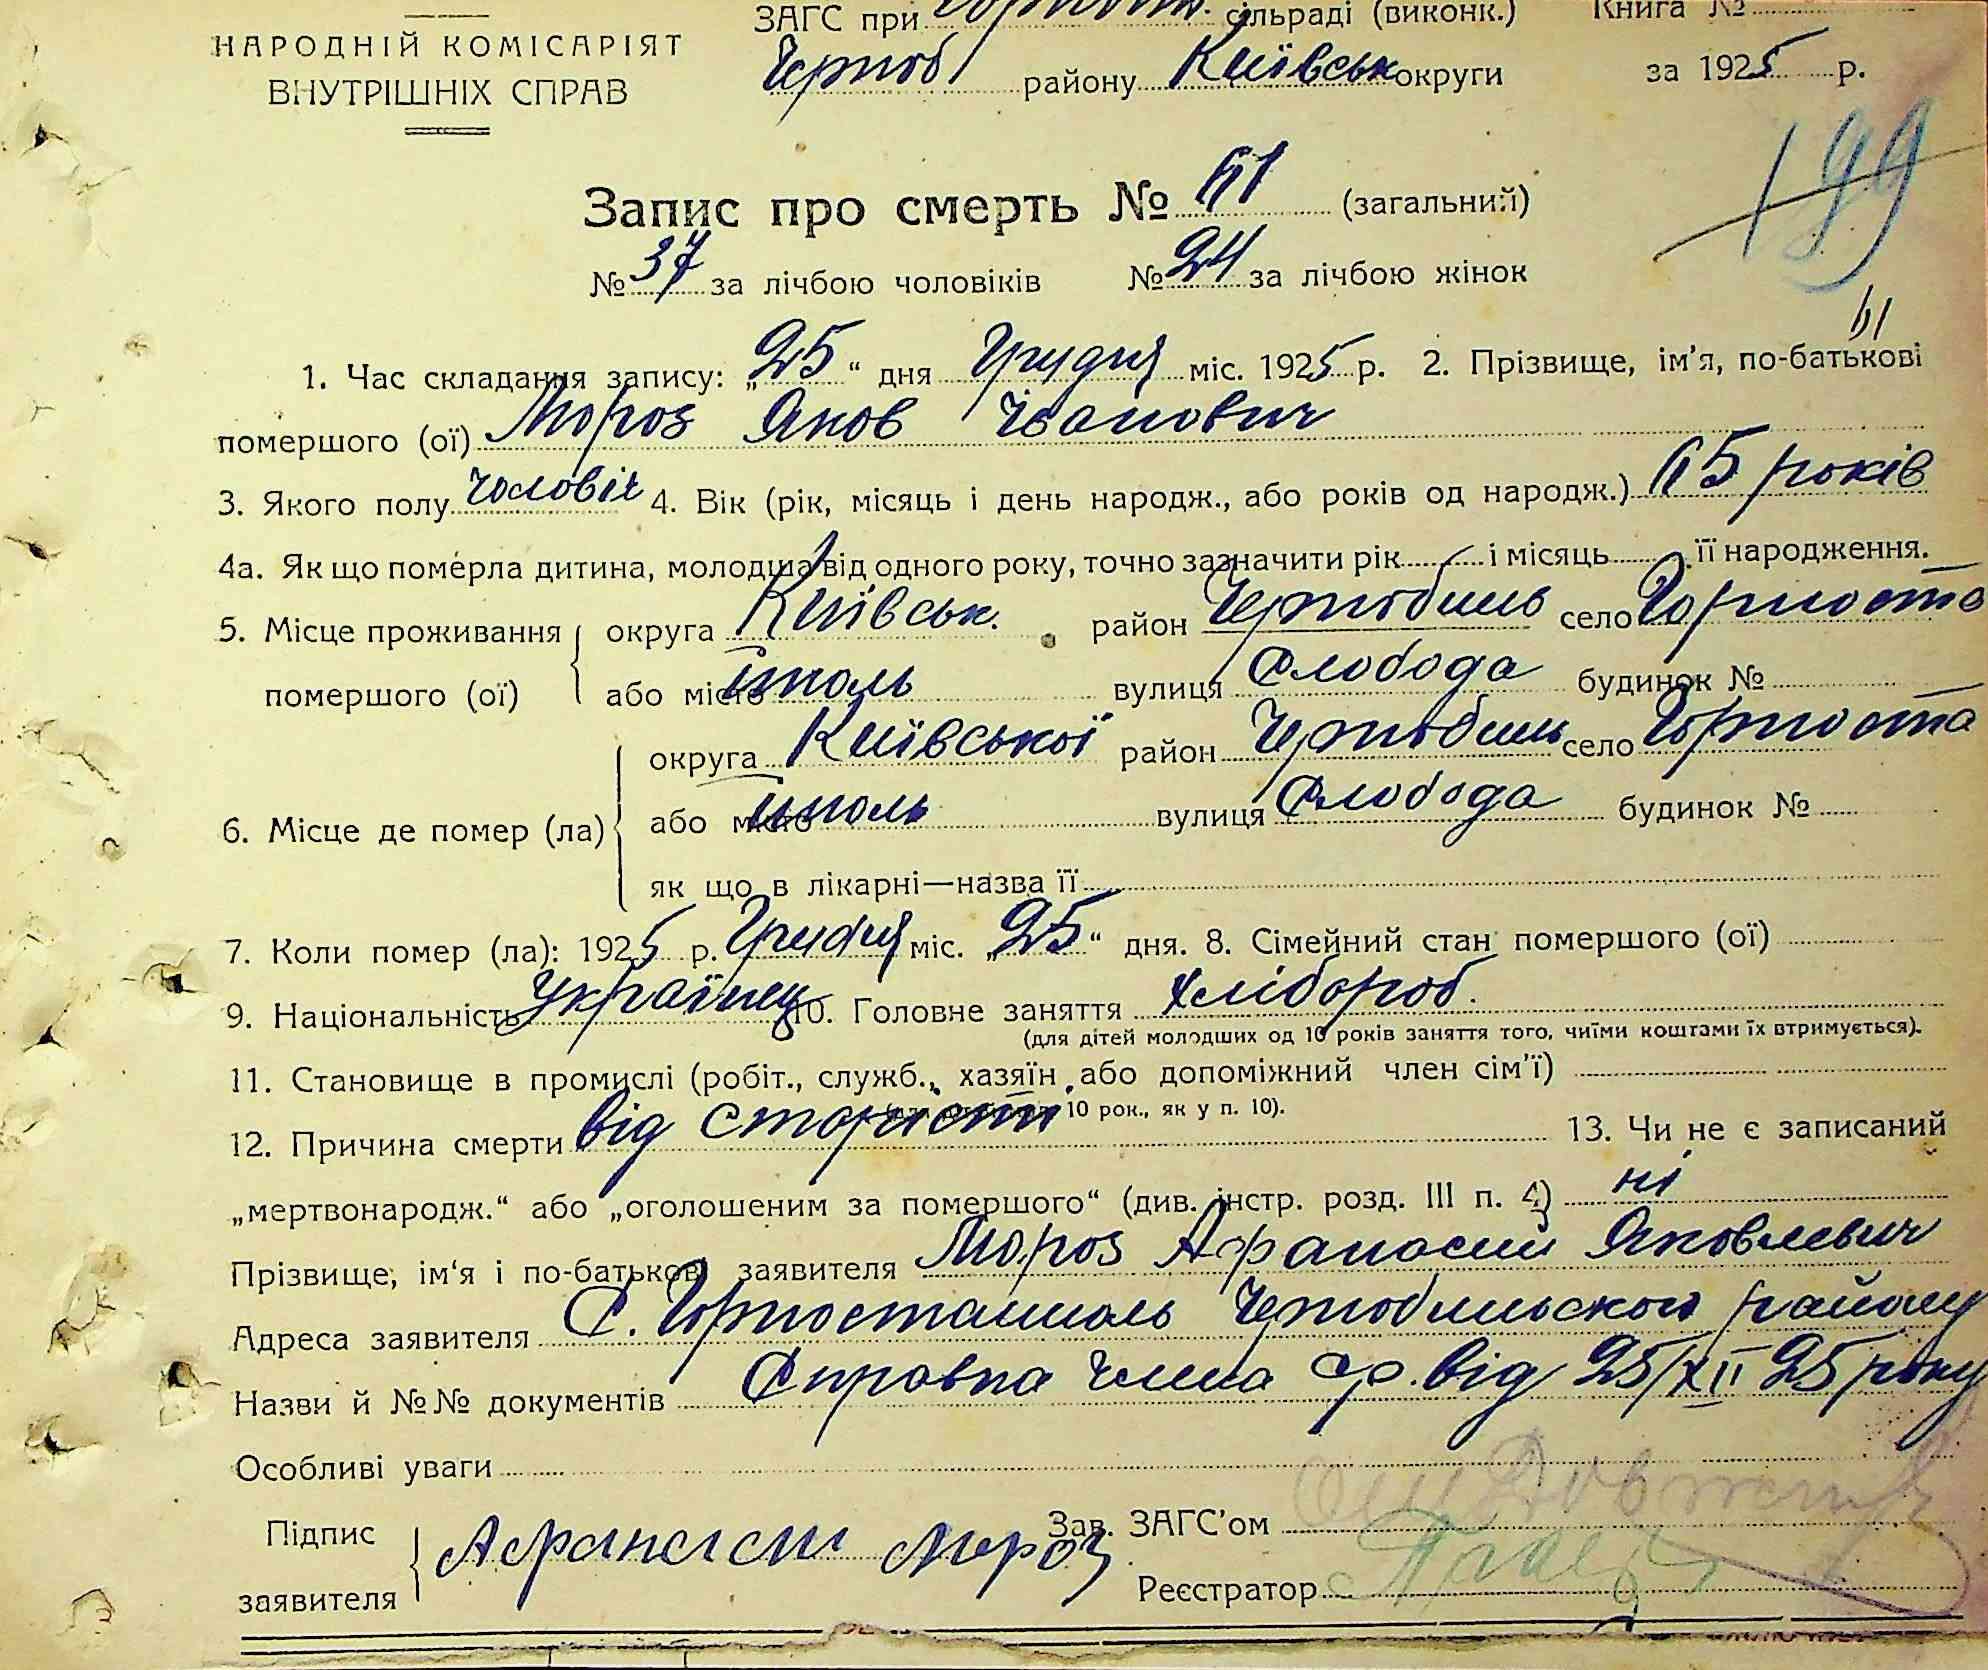 НАРОДНІЙ КОМІСАРІЯТ
ВНУТРІШНІХ СПРАВ
ЗАГС при сільраді (виконк.) Книга №
Чорноб району Київськ округи за 1925 р.
199
Запис про смерть № 61 (загальний)
№ 37 за лічбою чоловіків № 24 за лічбою жінок
61
1. Час складання запису: „25“ дня Грудня міс. 1925 р. 2. Прізвище, ім’я, по-батькові
помершого (ої) Мороз Яков Іванович
3. Якого полу чоловіч 4. Вік (рік, місяць і день народж., або років од народж.) 65 років
4а. Як що померла дитина, молодша від одного року, точно зазначити рік і місяць її народження.
5. Місце проживання округа Київськ. район Чорнобиль село Горноста
помершого (ої) або місто іполь вулиця Слобода будинок №
6. Місце де помер (ла) округа Київської район Чорнобиль село Горноста
або місто іполь вулиця Слобода будинок №
як що в лікарні—назва її
7. Коли помер (ла): 1925 р. Грудня міс. „25“ дня. 8. Сімейний стан помершого (ої)
9. Національність Українец 10. Головне заняття хлібороб.
(для дітей молодших од 10 років заняття того, чиїми коштами їх втримується).
11. Становище в промислі (робіт., служб., хазяїн або допоміжний член сім’ї)
10 рок., як у п. 10).
12. Причина смерти від старости 13. Чи не є записаний
„мертвонародж.“ або „оголошеним за помершого“ (див. інстр. розд. III п. 4) ні
Прізвище, ім‘я і по-батькові заявителя Мороз Афанасий Яковлевич
Адреса заявителя С. Горностайполь Чорнобильского району
Назви й №№ документів Справка Члена с/р. від 25/XII 25 року
Особливі уваги
Підпис заявителя Афанасий Мороз Зав. ЗАГС’ом
Реєстратор